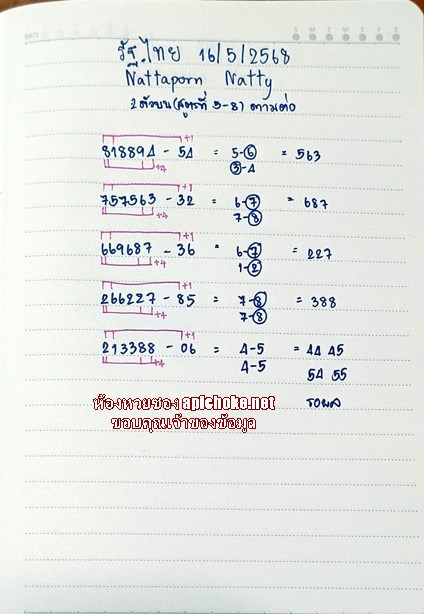 รัฐ.ไทย 16/5/2568
Nattaporn Natty
2 ตัวบน (สูตรที่ 3-8) ตามต่อ
+1
818894 - 54 = 5-6 = 563
+4 3-4
+1
757563 - 32 = 6-7 = 687
+4 7-8
+1
669687 - 36 = 6-7 = 227
+4 1-2
+1
266227 - 85 = 7-8 = 388
+4 7-8
+1
213388 - 06 = 4-5 = 44 45
+4 4-5 54 55
ห้องหวยซอง apichoke.net รอผล
ขอบคุณเจ้าของข้อมูล